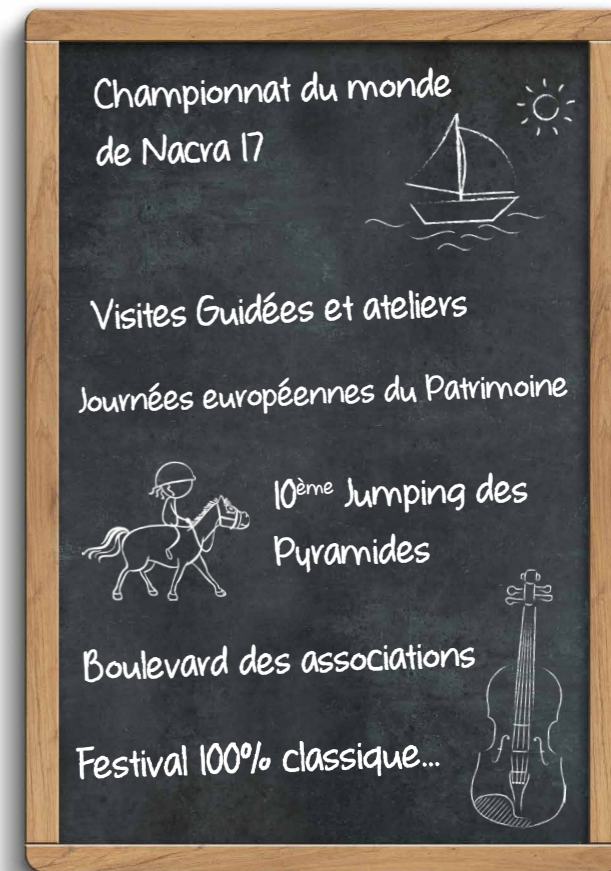 Championnat du monde
de Nacra 17
Visites Guidées et ateliers
Journées européennes du Patrimoine
10ème Jumping des
Pyramides
Boulevard des associations
Festival 100% classique...